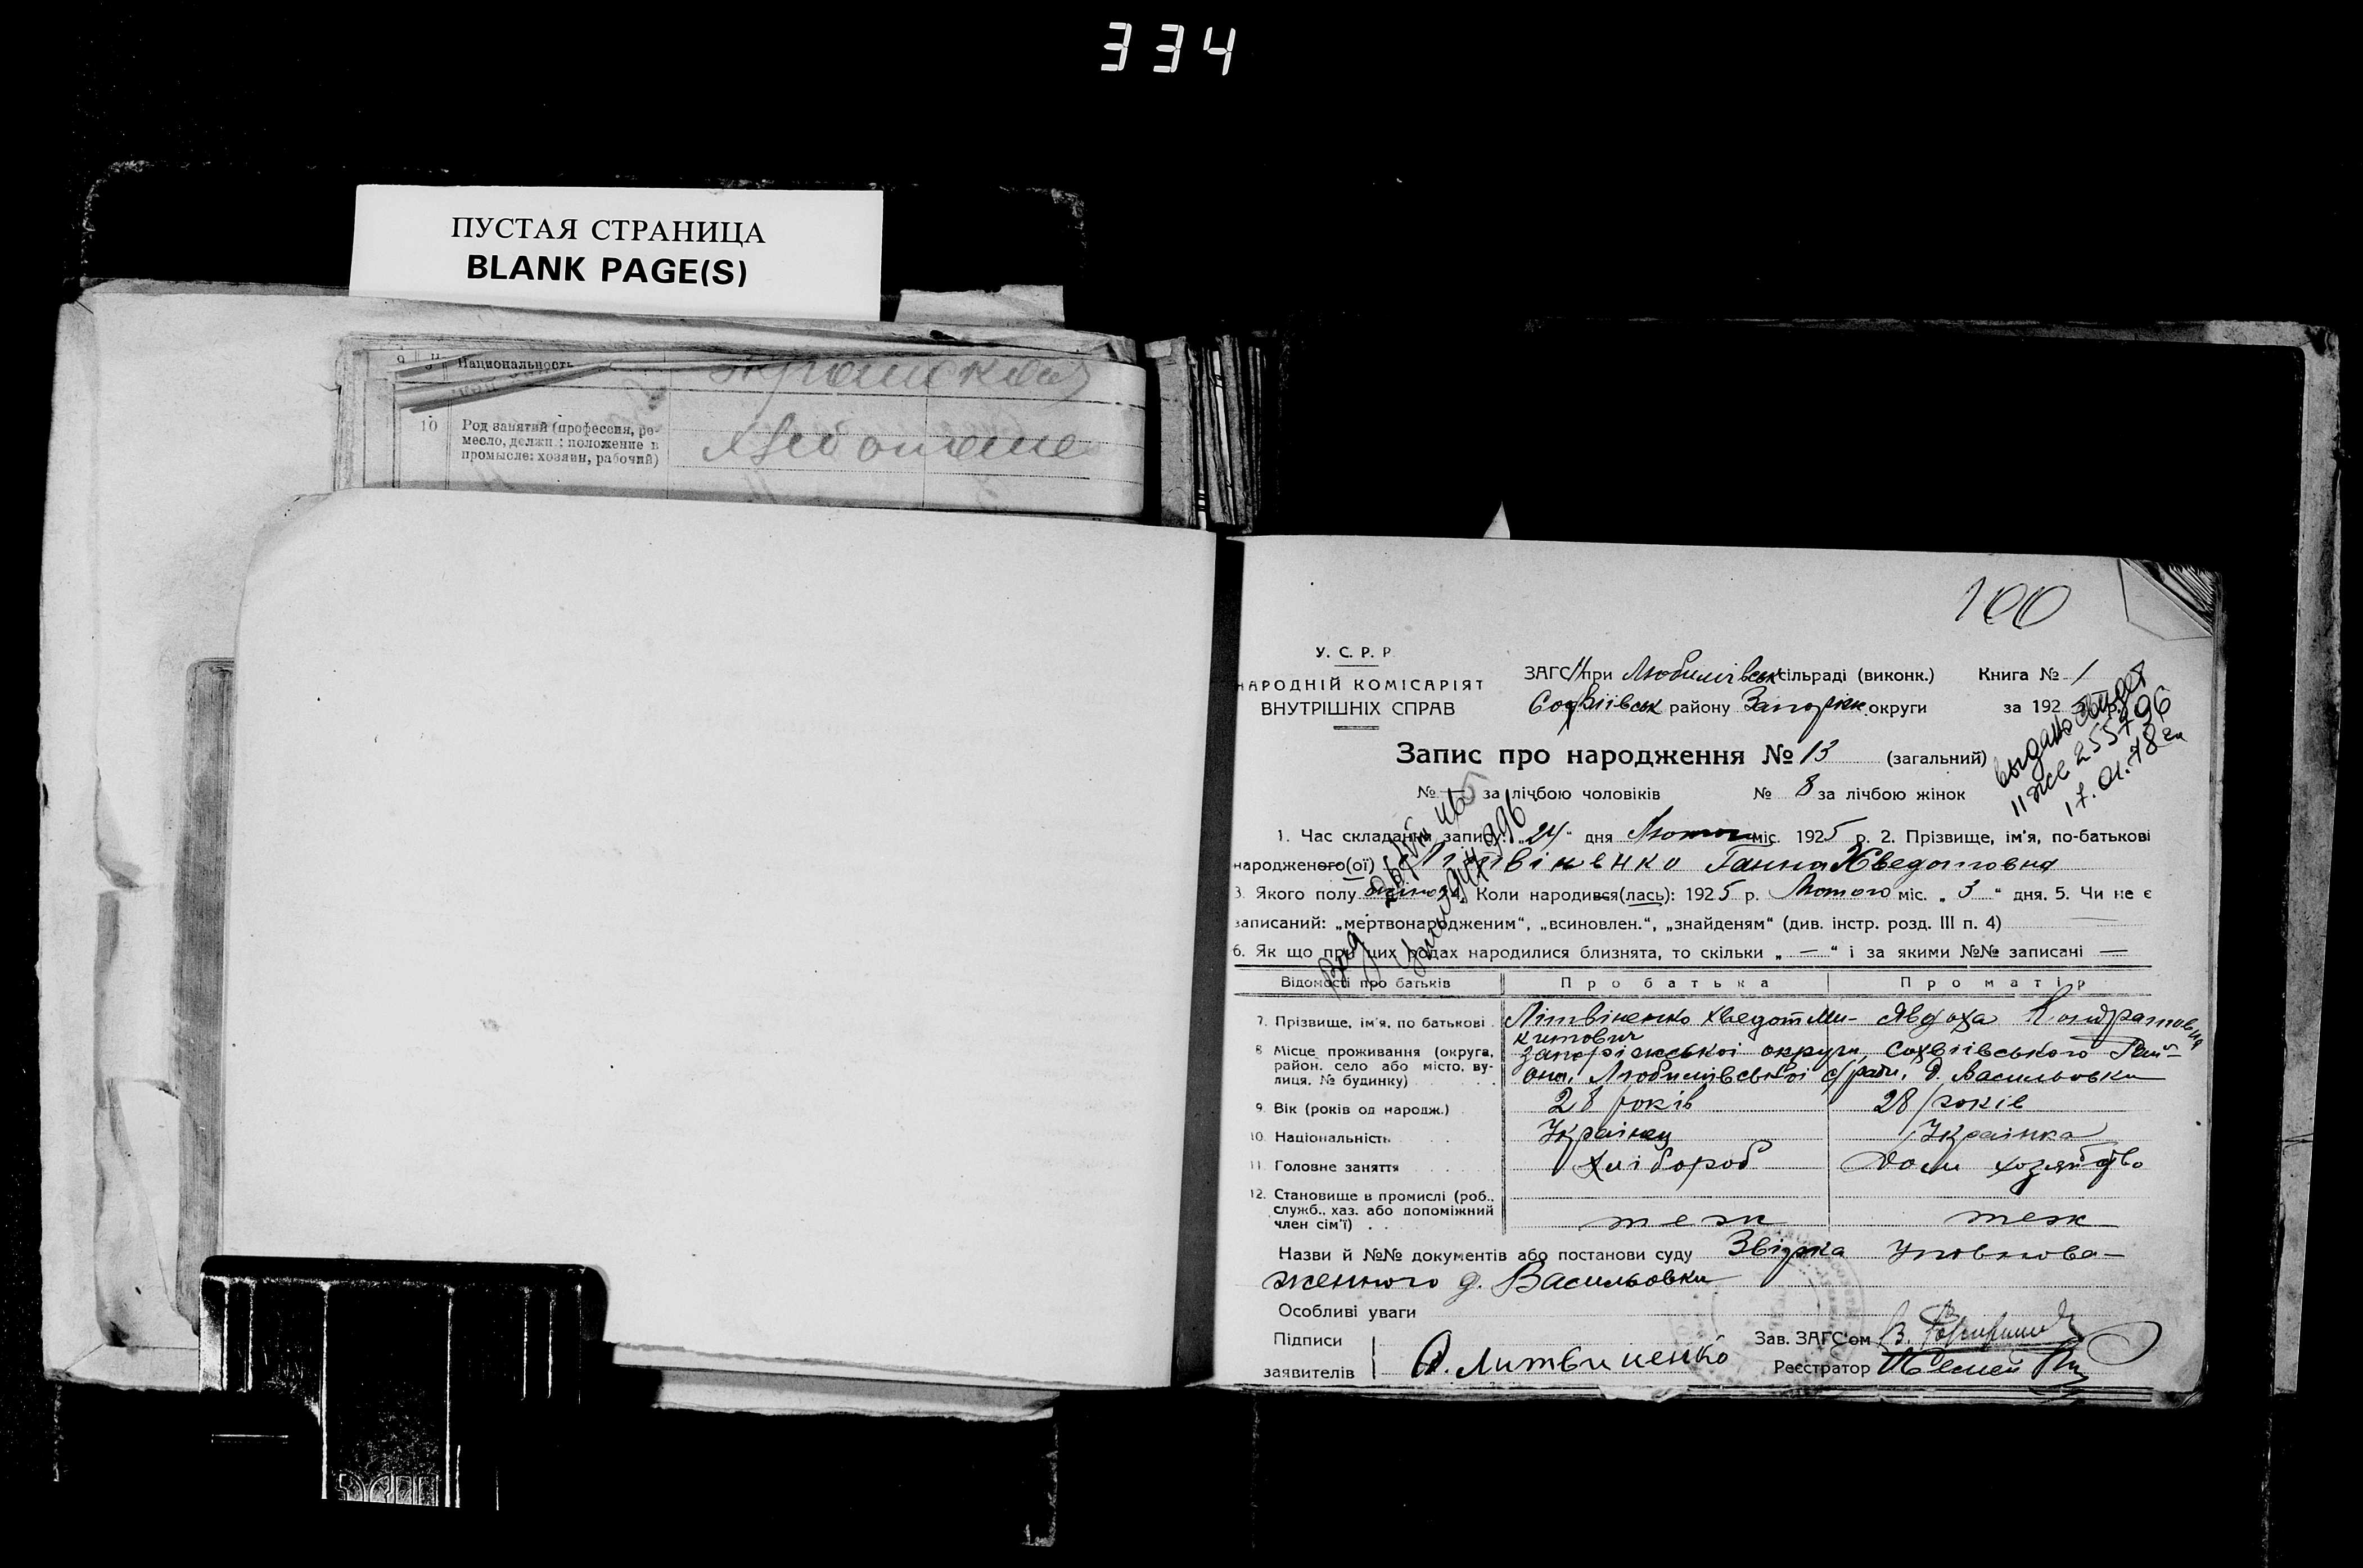 334
ПУСТАЯ СТРАНИЦА
BLANK PAGE(S)
9 Национальность
10 Род занятий (профессия, ре-
месло, должн.: положение в
промысле: хозяин, рабочий)
100
У. С. Р. Р
НАРОДНІЙ КОМІСАРІЯТ
ВНУТРІШНІХ СПРАВ
ЗАГС при Любимівськ сільраді (виконк.) Книга № 1
Софіівськ району Запоріжк округи за 192
выдано свидет
II жс 255796
17.01.78 г
Запис про народження № 13 (загальний)
№ — за лічбою чоловіків № 8 за лічбою жінок
1. Час складання запису: „24“ дня Лютого міс. 1925 р. 2. Прізвище, ім'я, по-батькові
народженого(ої) Літвіненко Ганна Хведотовна
3. Якого полу жіноч. 4. Коли народився(лась): 1925 р. Лютого міс. „3“ дня. 5. Чи не є
записаний: „мертвонародженим“, „всиновлен.“, „знайденям“ (див. інстр. розд. III п. 4)
6. Як що при цих родах народилися близнята, то скільки „—“ і за якими №№ записані —
Відомості про батьків Про батька Про матір
7. Прізвище, ім'я, по батькові Літвіненко Хведот Ми- Явдоха Кондратовна
китович
8 Місце проживання (округа, Запоріжськоі округи, Сохвіівського Рай-
район, село або місто, ву- она, Любимівськоі с/ради, д. Васильовки
лиця, № будинку)
9. Вік (років од народж.) 28 років 28 років
10. Національність Украінец Украінка
11. Головне заняття Хлібороб Дом хозяйство
12. Становище в промислі (роб.,
служб., хаз. або допоміжний
член сім'ї) теж теж
Назви й №№ документів або постанови суду Звідка Уповнова-
женного д. Васильовки
Особливі уваги
Підписи Зав. ЗАГС'ом В.
заявителів Литвиненко Реєстратор